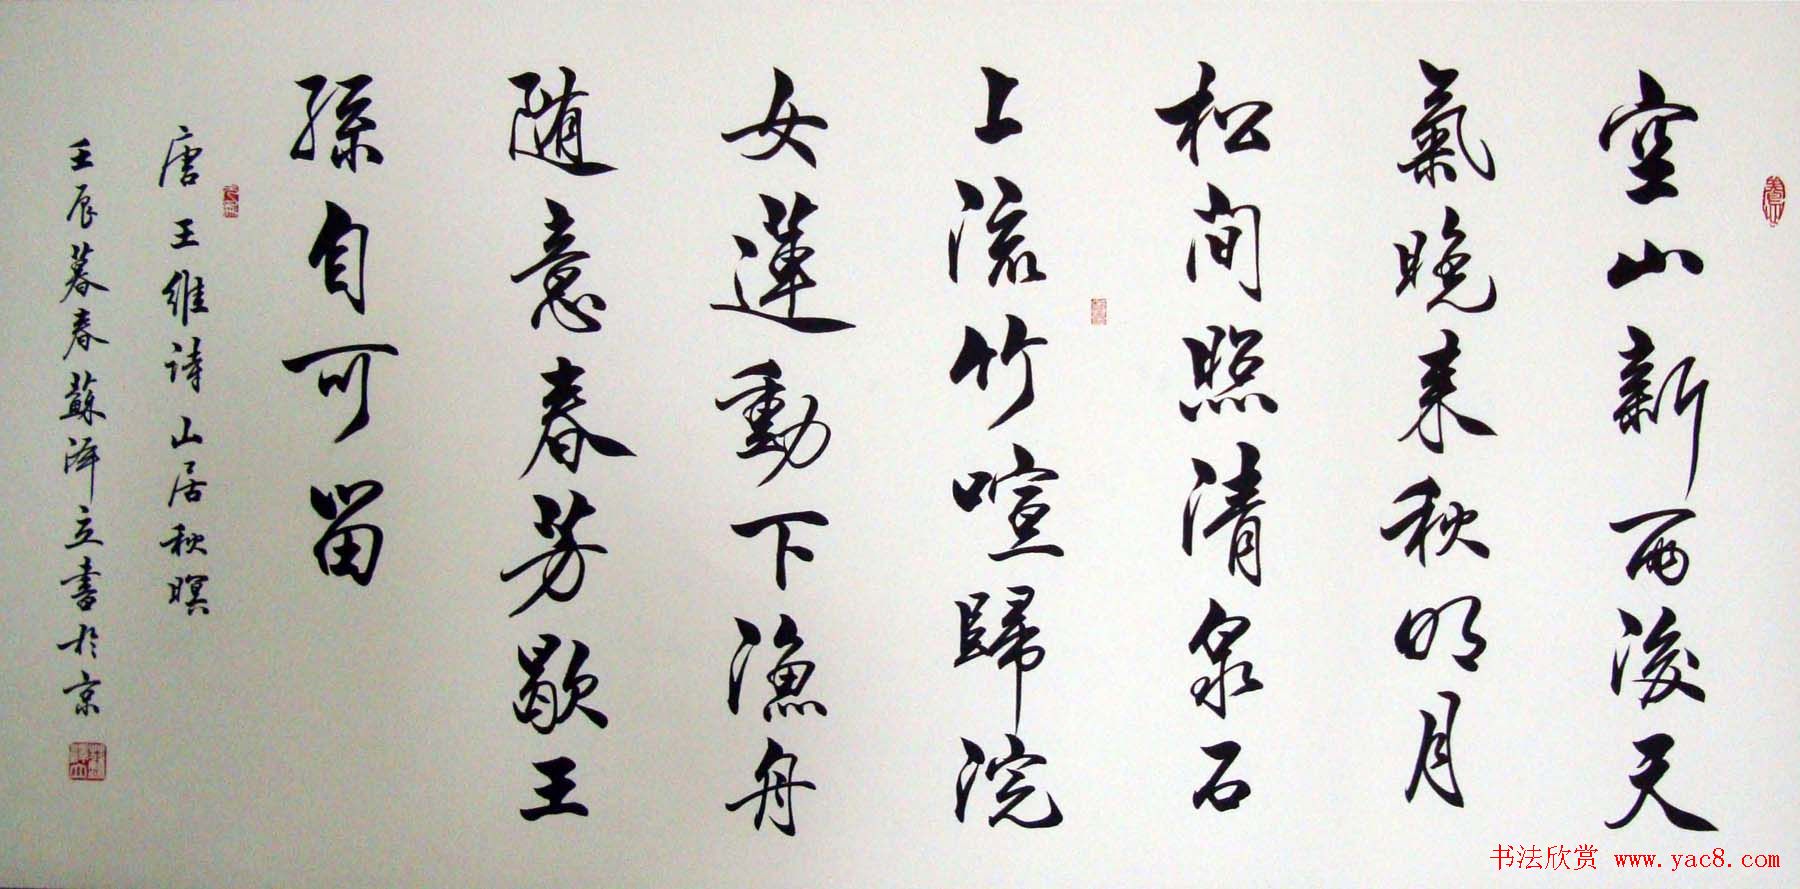 空山新雨後天
氣晚来秋明月
松间照清泉石
上流竹喧歸浣
女蓮動下漁舟
随意春芳歇王
孫自可留
唐王维诗山居秋暝
壬辰暮春蘇泽立書於京
书法欣赏 www.yac8.com